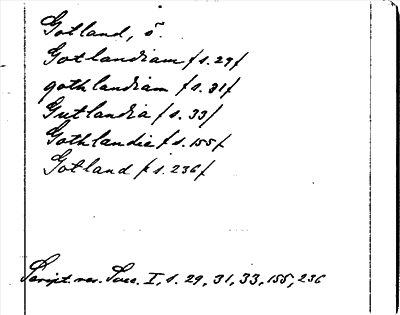 Gotland, ö.
Gotlandiam /s. 29/
gothlandiam /s. 31/
Gutlandia /s. 33/
Gothlandie /s. 155/
Gotland /s. 236/
Script. rer. Suec. I, s. 29, 31, 33, 155, 236